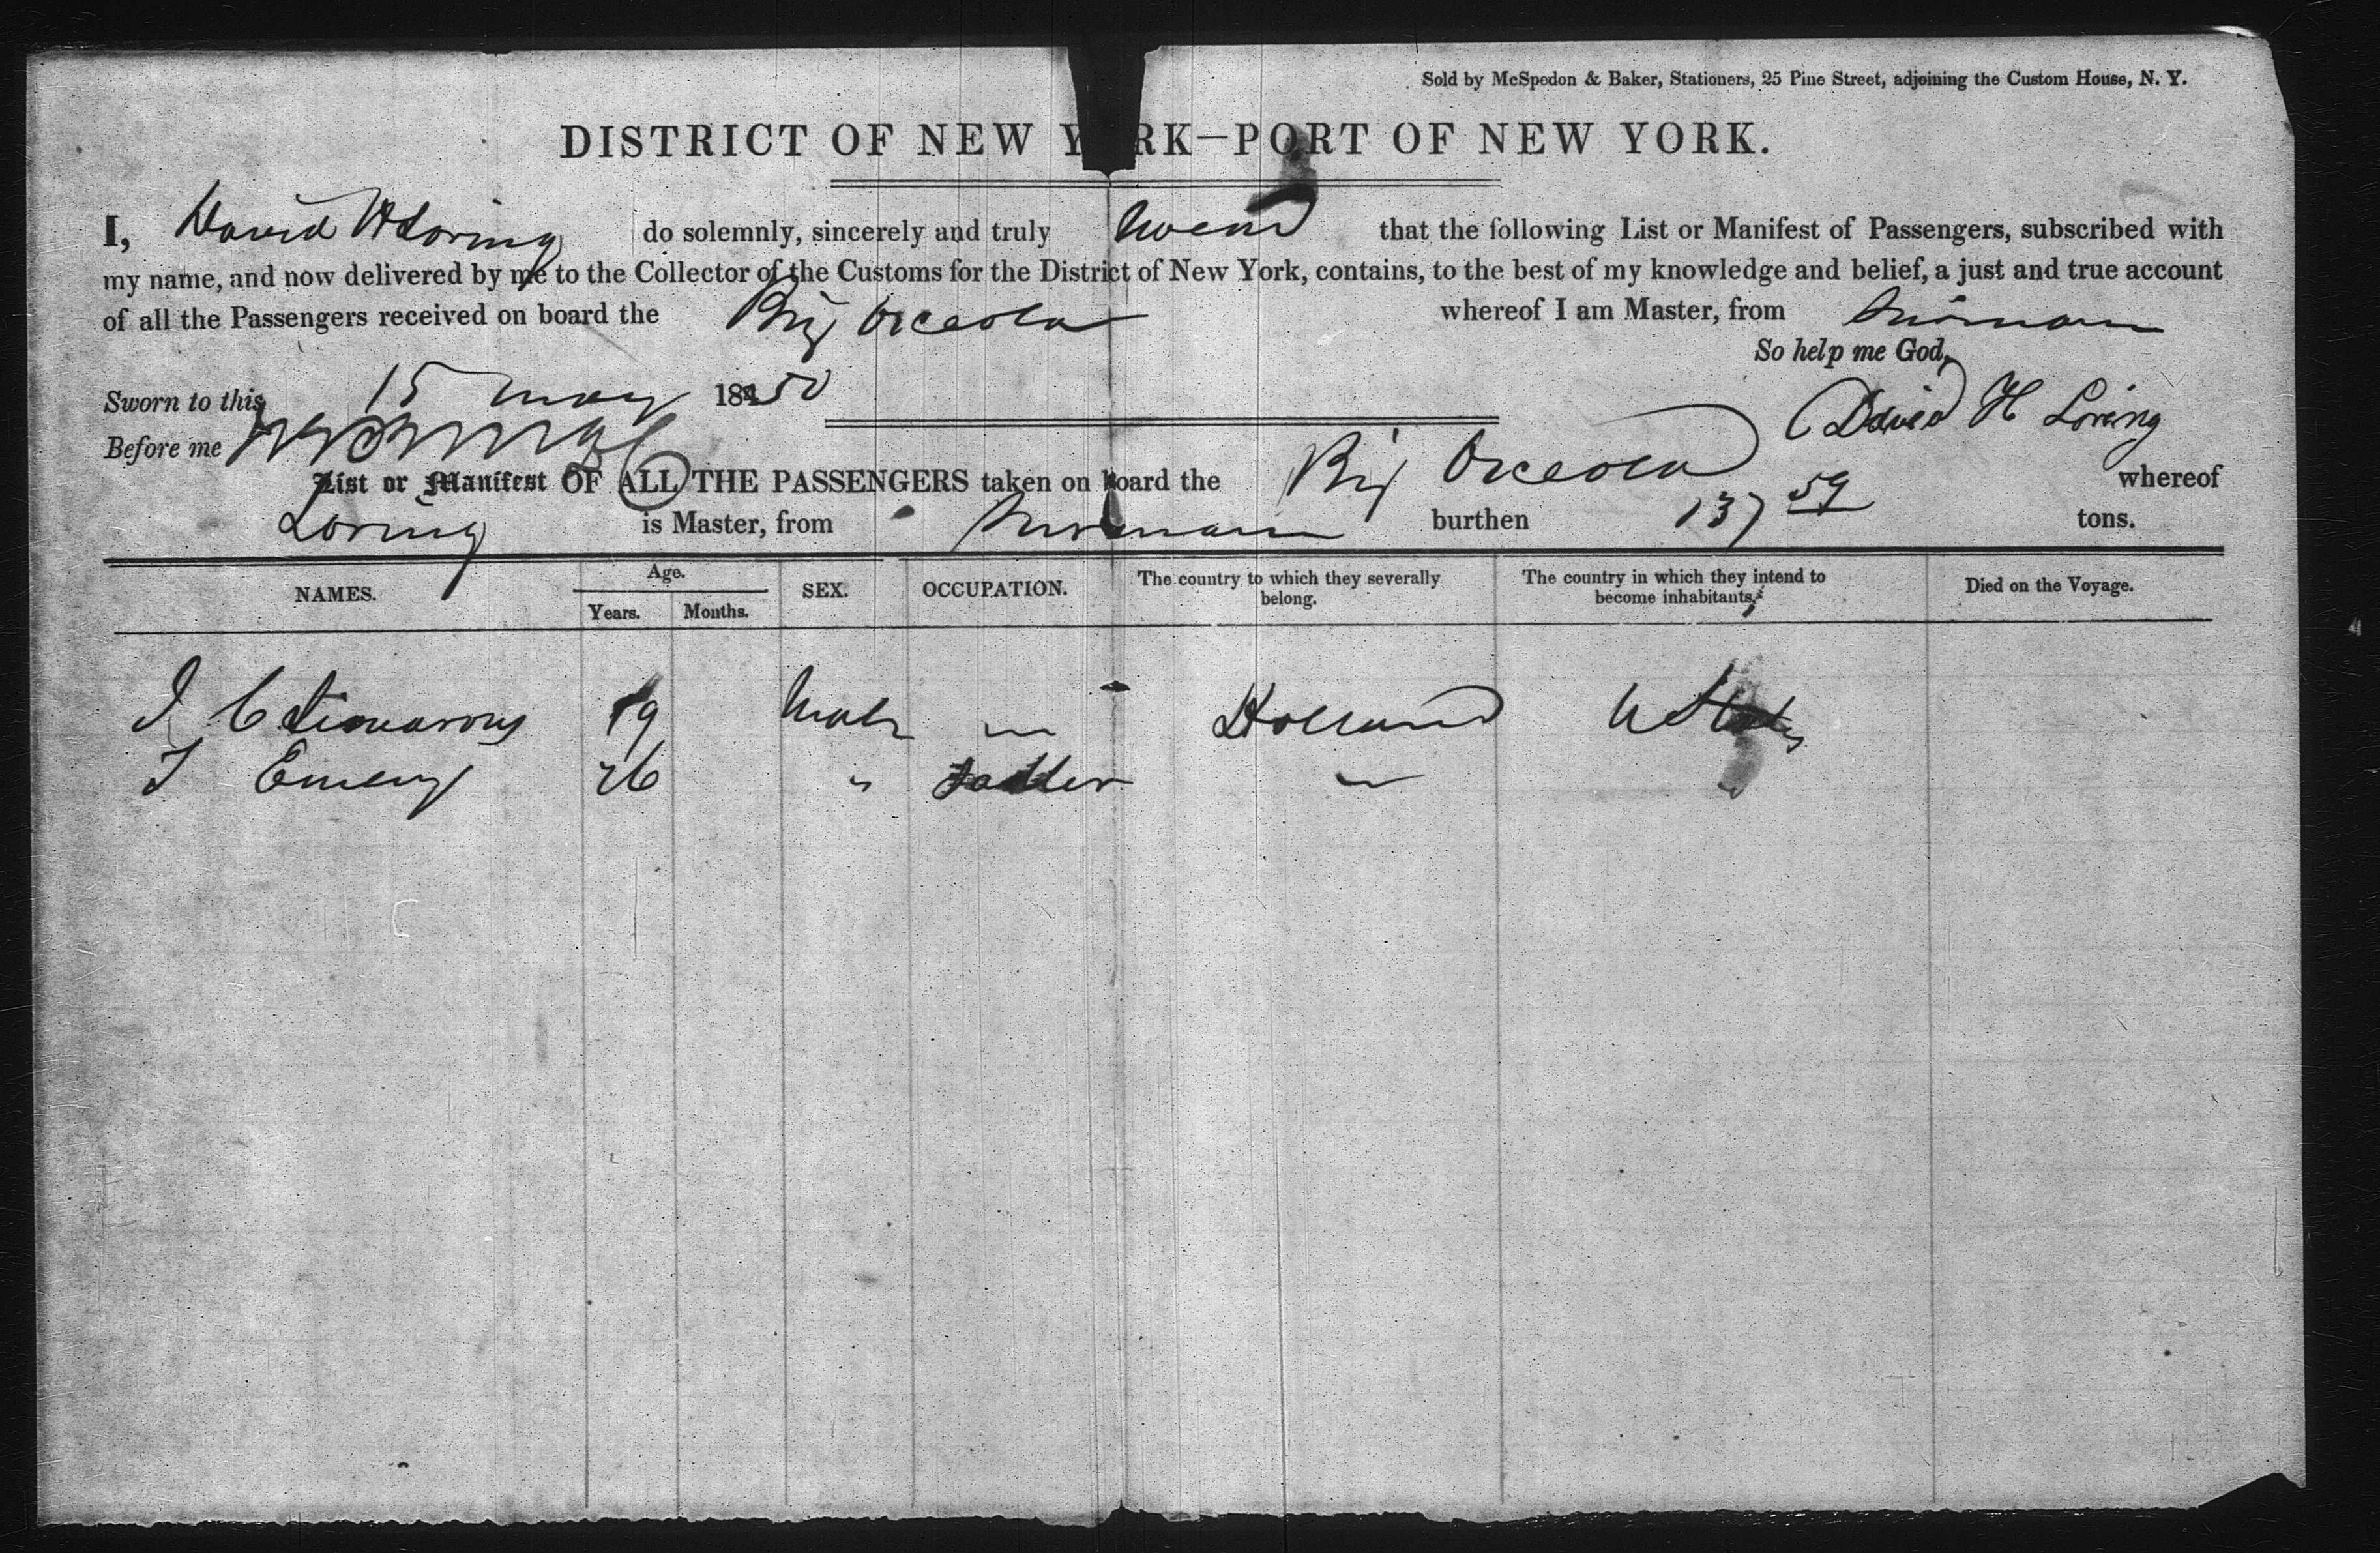 Sold by McSpedon & Baker, Stationers, 25 Pine Street, adjoining the Custom House, N. Y.
DISTRICT OF NEW Y RK—PORT OF NEW YORK.
I, David H Loring do solemnly, sincerely and truly swear that the following List or Manifest of Passengers, subscribed with
my name, and now delivered by me to the Collector of the Customs for the District of New York, contains, to the best of my knowledge and belief, a just and true account
of all the Passengers received on board the Brig Osceola whereof I am Master, from Surinam
So help me God,
Sworn to this 15 May 1850
David H Loring
Before me
List or Manifest OF ALL THE PASSENGERS taken on board the Brig Osceola whereof
Loring is Master, from Surinam burthen 137 59 tons.
NAMES. Age. Years. Months. SEX. OCCUPATION. The country to which they severally belong. The country in which they intend to become inhabitants. Died on the Voyage.
J C 19 Male " Holland U States
J Emery 26 " "